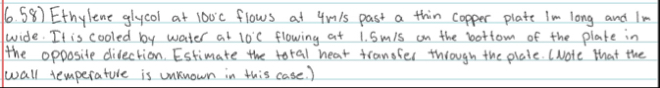 6.58) Ethylene glycol at 100°C flows at 4m/s past a thin copper plate 1m long and 1m
wide. It is cooled by water at 10°C flowing at 1.5m/s on the bottom of the plate in
the opposite direction. Estimate the total heat transfer through the plate. (Note that the
wall temperature is unknown in this case.)